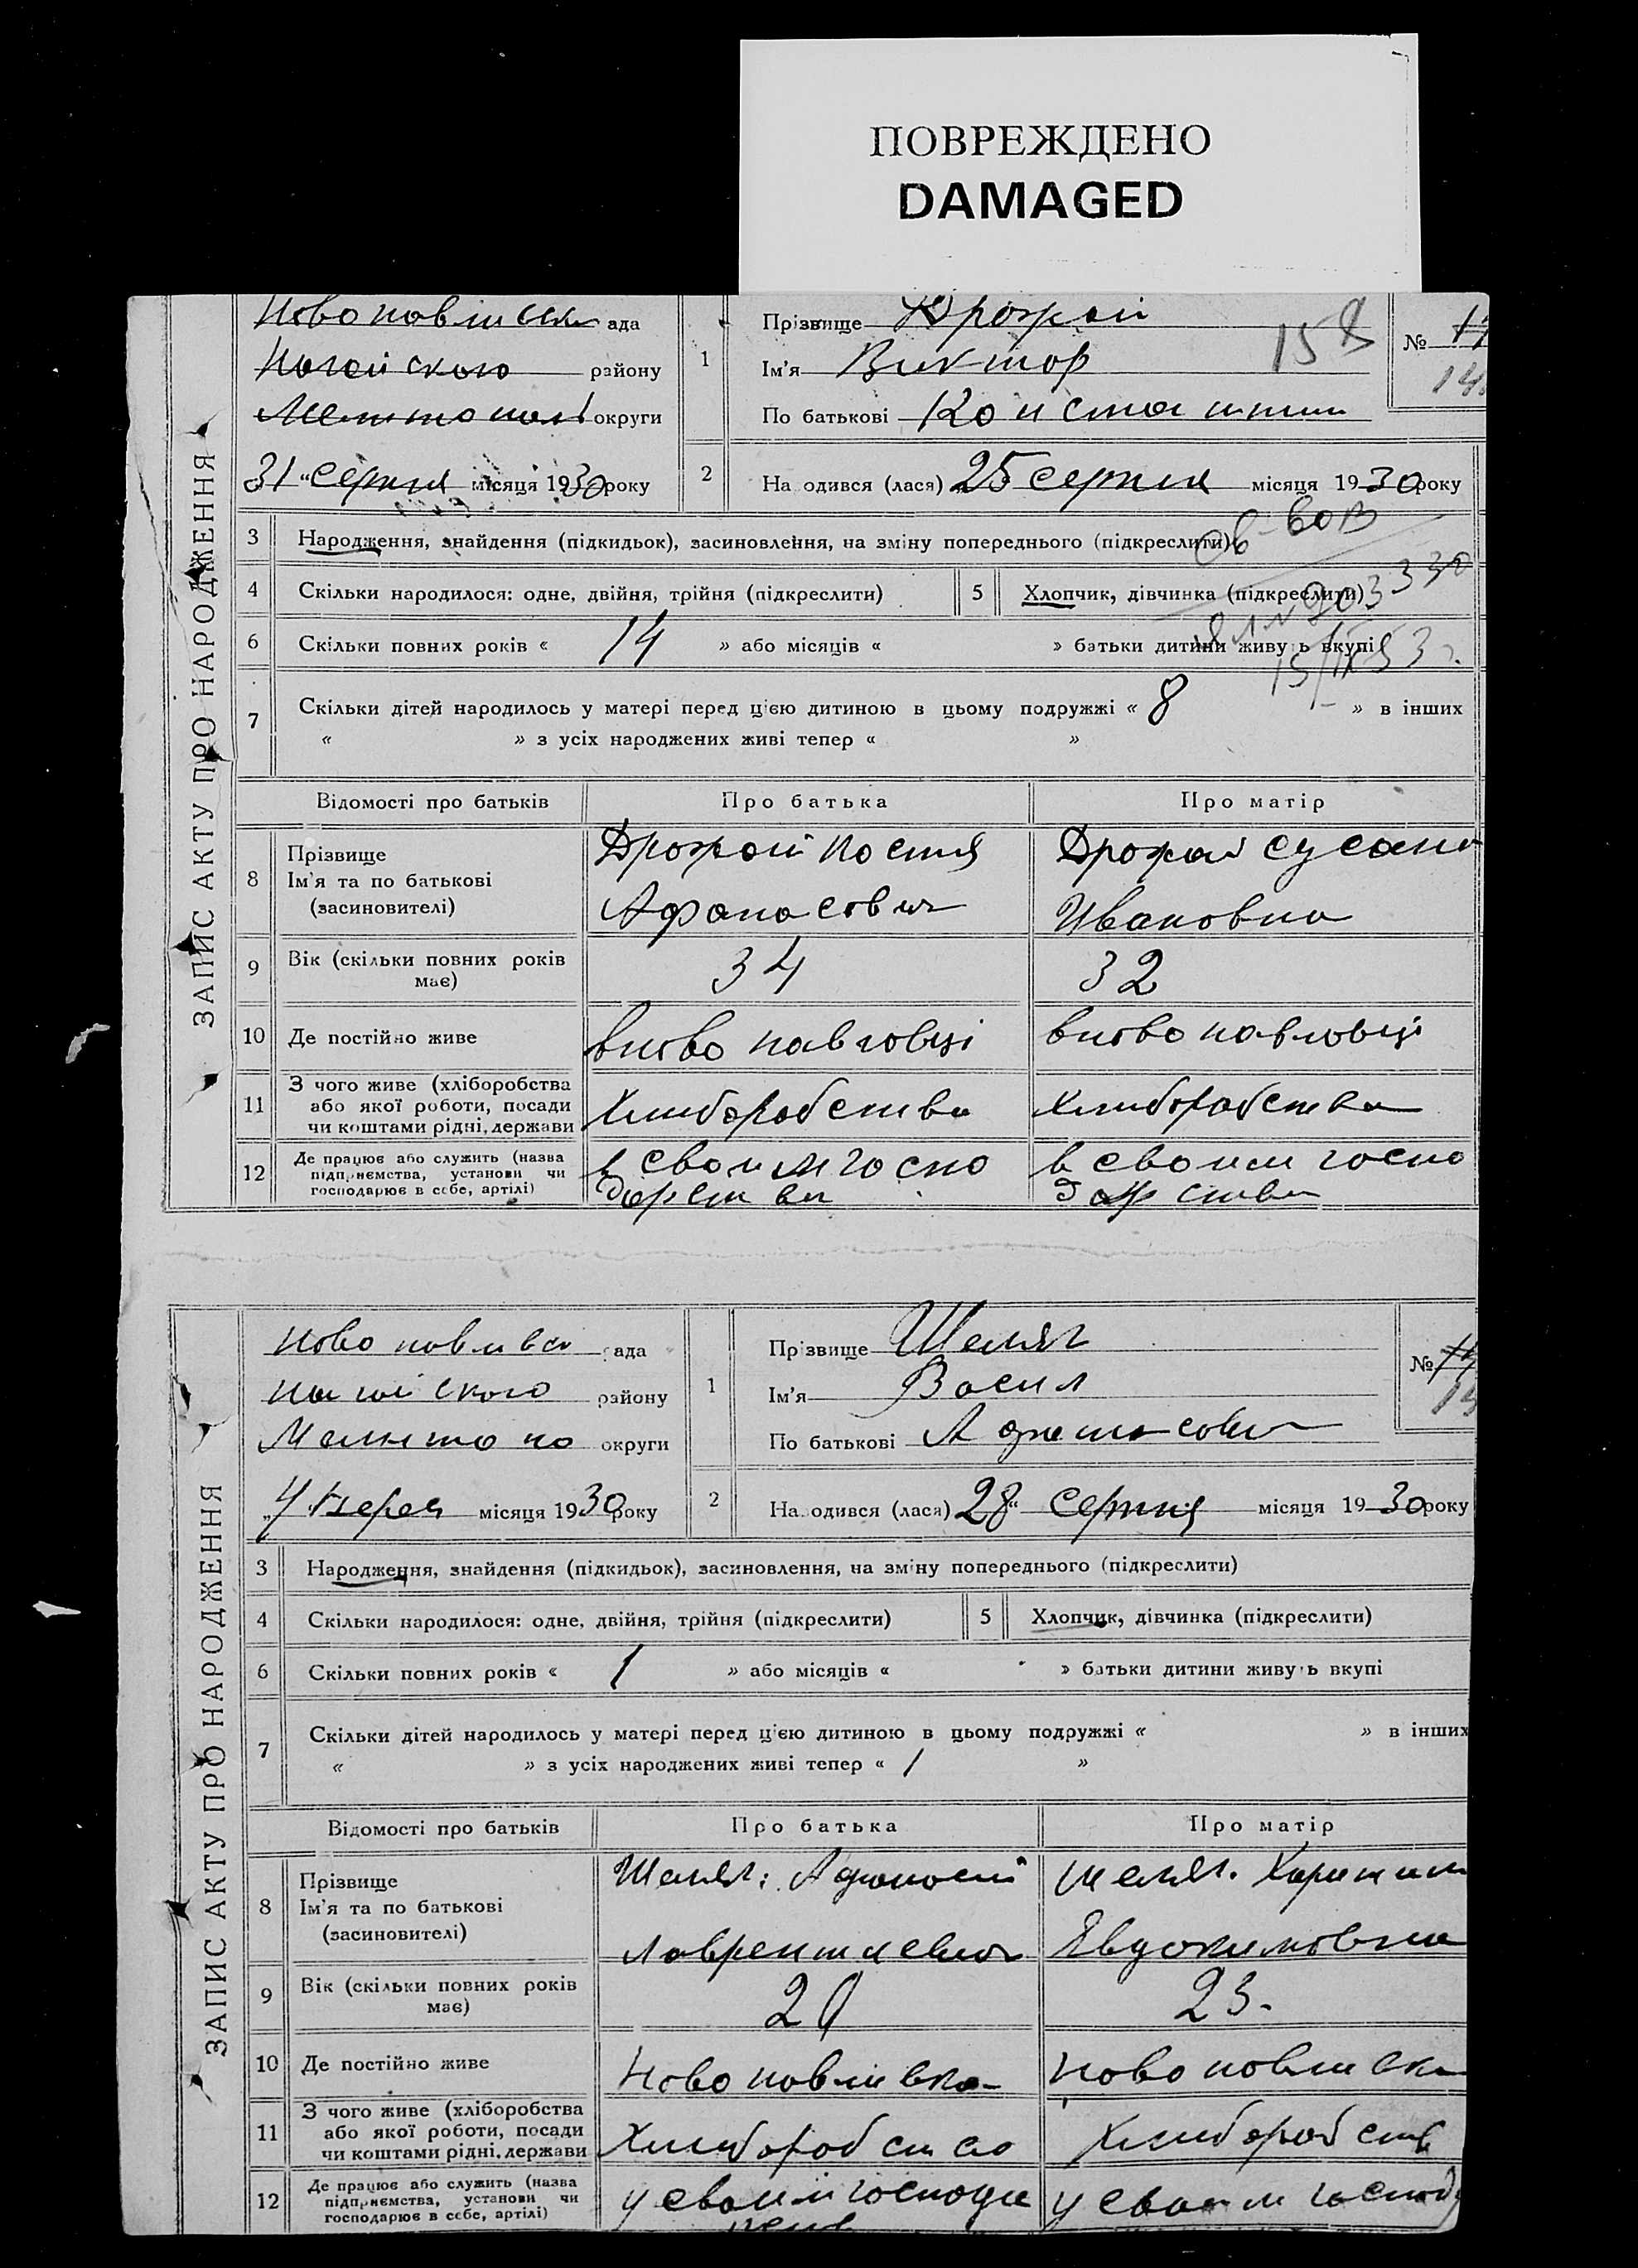 ПОВРЕЖДЕНО
DAMAGED
ЗАПИС АКТУ ПРО НАРОДЖЕННЯ
ада
Ногайского району
округи
31 серпня місяця 1930 року
1
Прізвище Дрожай
Ім'я Виктор
По батькові
№
158
2
На одився (лася) 25 серпня місяця 1930 року
3 Народження, знайдення (підкидьок), засиновлення, на зміну попереднього (підкреслити)
4 Скільки народилося: одне, двійня, трійня (підкреслити)
5 Хлопчик, дівчинка (підкреслити)
6 Скільки повних років « 14 » або місяців « » батьки дитини живу ь вкупі
7 Скільки дітей народилось у матері перед цією дитиною в цьому подружжі « 8 » в інших
« » з усіх народжених живі тепер « »
Відомості про батьків Про батька Про матір
8 Прізвище
Ім'я та по батькові
(засиновителі)
Дрожай Костя
Дрожай Сусана
Ивановна
9 Вік (скільки повних років
має)
34
32
10 Де постійно живе
вново павловці
вново павловці
11 З чого живе (хліборобства
або якої роботи, посади
чи коштами рідні, держави
Хлиборобства
Хлиборобства
12 Де працює або служить (назва
підприємства, установи чи
господарює в себе, артілі)
в своим госпо
дарстви
в своим госпо
дарстви
ЗАПИС АКТУ ПРО НАРОДЖЕННЯ
ада
Ногайского району
Мелитопо округи
4 Верес місяця 1930 року
1
Прізвище Шеляг
Ім'я Васил
По батькові
№
2
На одився (лася) 28 серпня місяця 1930 року
3 Народження, знайдення (підкидьок), засиновлення, на зміну попереднього (підкреслити)
4 Скільки народилося: одне, двійня, трійня (підкреслити)
5 Хлопчик, дівчинка (підкреслити)
6 Скільки повних років « 1 » або місяців « » батьки дитини живу ь вкупі
7 Скільки дітей народилось у матері перед цією дитиною в цьому подружжі « » в інших
« » з усіх народжених живі тепер « 1 »
Відомості про батьків Про батька Про матір
8 Прізвище
Ім'я та по батькові
(засиновителі)
Шеляг: Афанасий
Лаврентиевич
Шеляг.
Евдокимовна
9 Вік (скільки повних років
має)
23.
10 Де постійно живе
Ново павливка
Ново павливка
11 З чого живе (хліборобства
або якої роботи, посади
чи коштами рідні, держави
Хлиборобство
Хлиборобств
12 Де працює або служить (назва
підприємства, установи чи
господарює в себе, артілі)
у своим
у своим господ